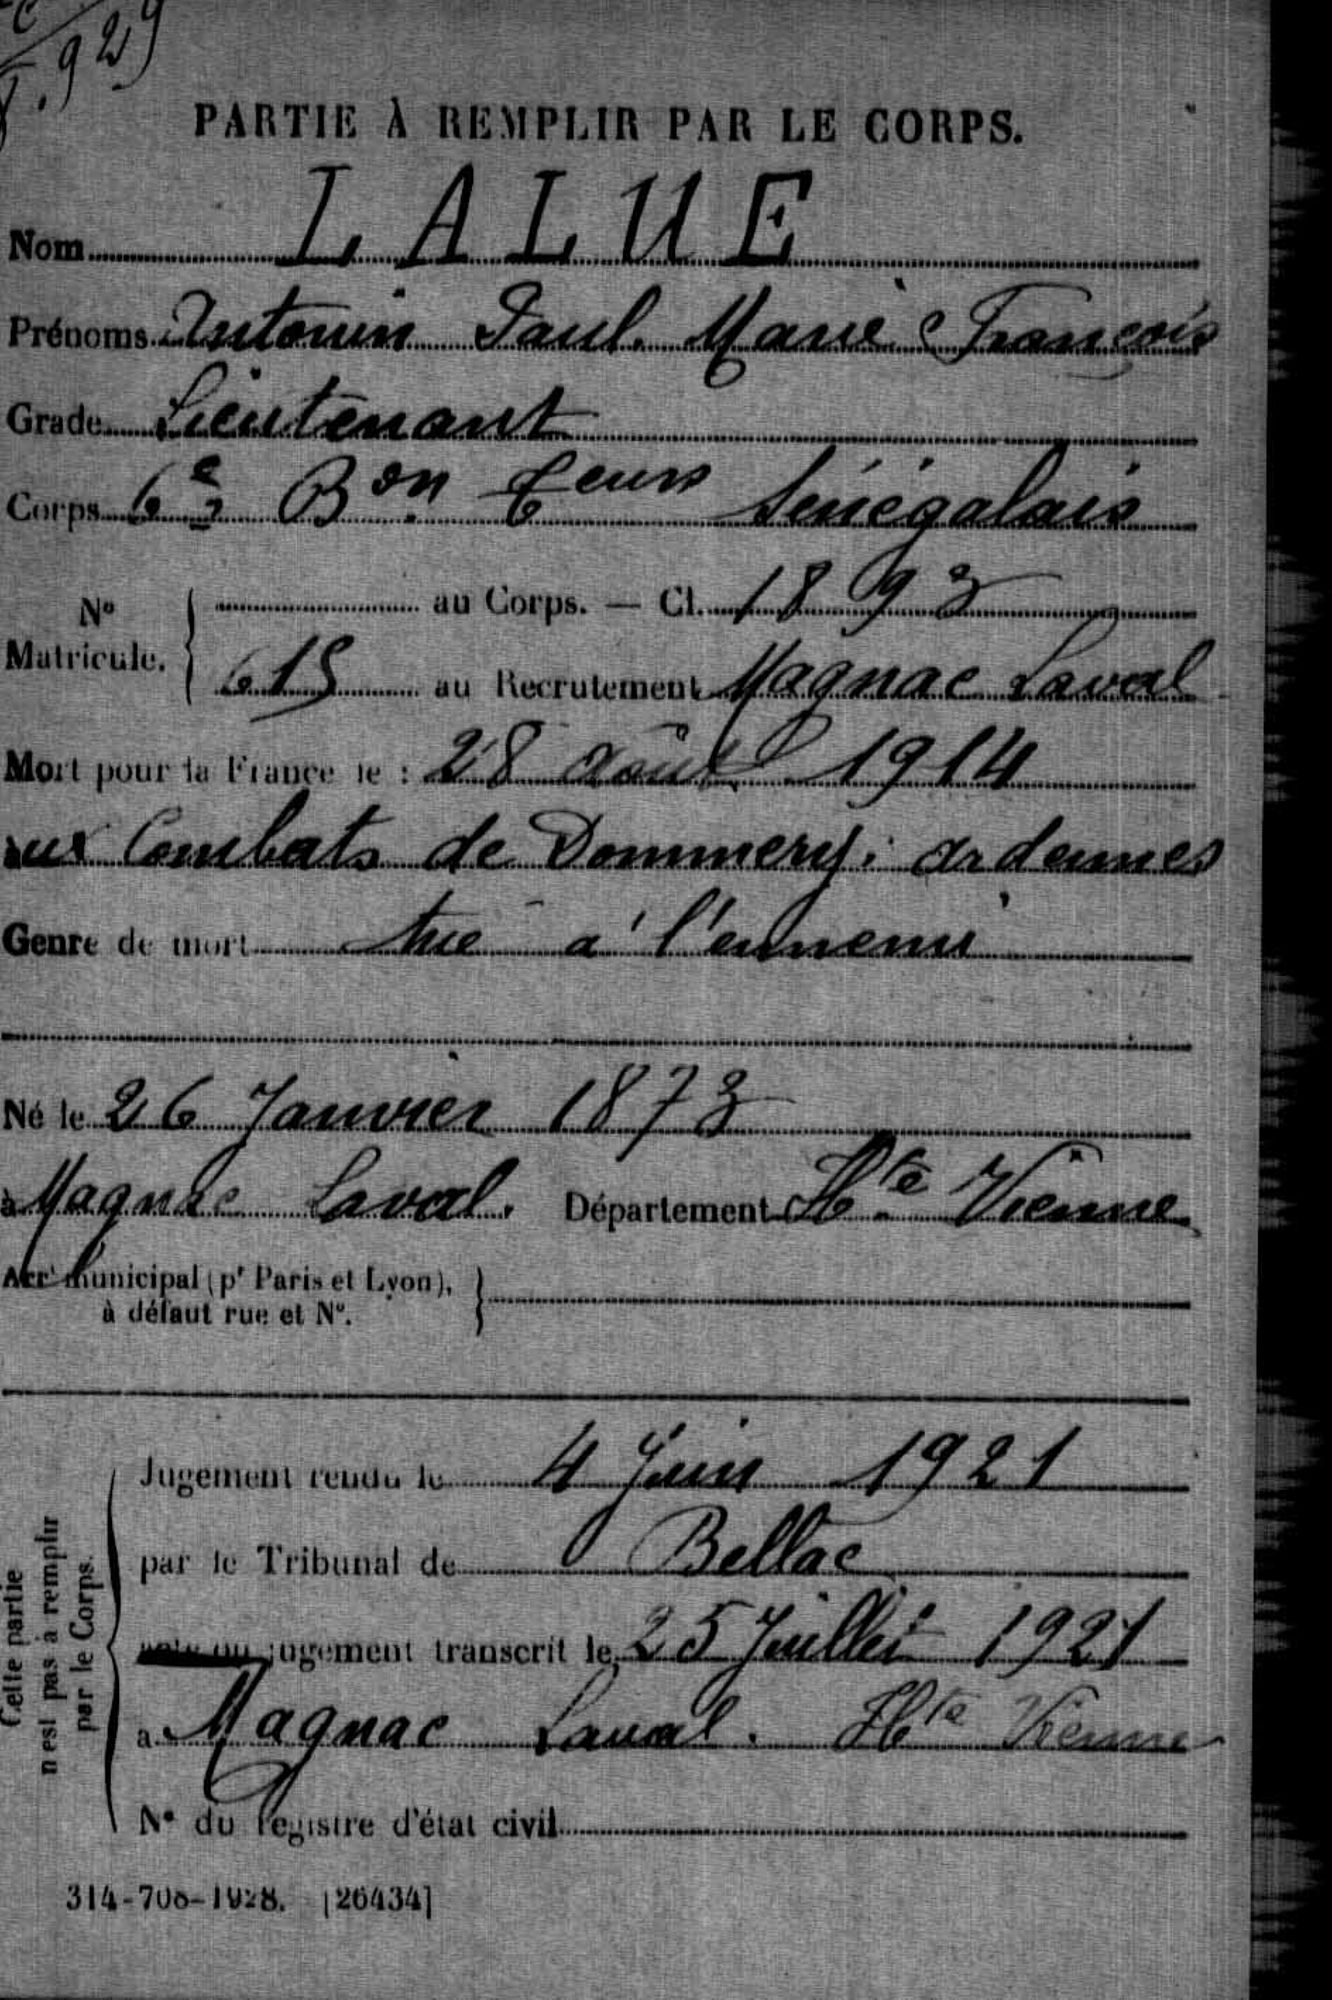 .929
PARTIE À REMPLIR PAR LE CORPS.
Nom LALUE
Prénoms Antonin Paul Marie François
Grade Lieutenant
Corps 6e Bon Teurs Sénégalais
No Matricule. { au Corps. — Cl. 1893
615 au Recrutement Magnac Laval
Mort pour la France le : 28 août 1914
aux Combats de Dommery. ardennes
Genre de mort tué à l'ennemi
Né le 26 Janvier 1873
à Magnac Laval. Département Hte Vienne
Arrt municipal (pr Paris et Lyon), }
à défaut rue et No.
Cette partie
n'est pas à remplir
par le Corps.
Jugement rendu le 4 Juin 1921
par le Tribunal de Bellac
jugement transcrit le 25 Juillet 1921
à Magnac Laval. Hte Vienne
No du registre d'état civil
314-708-1928. [26434]